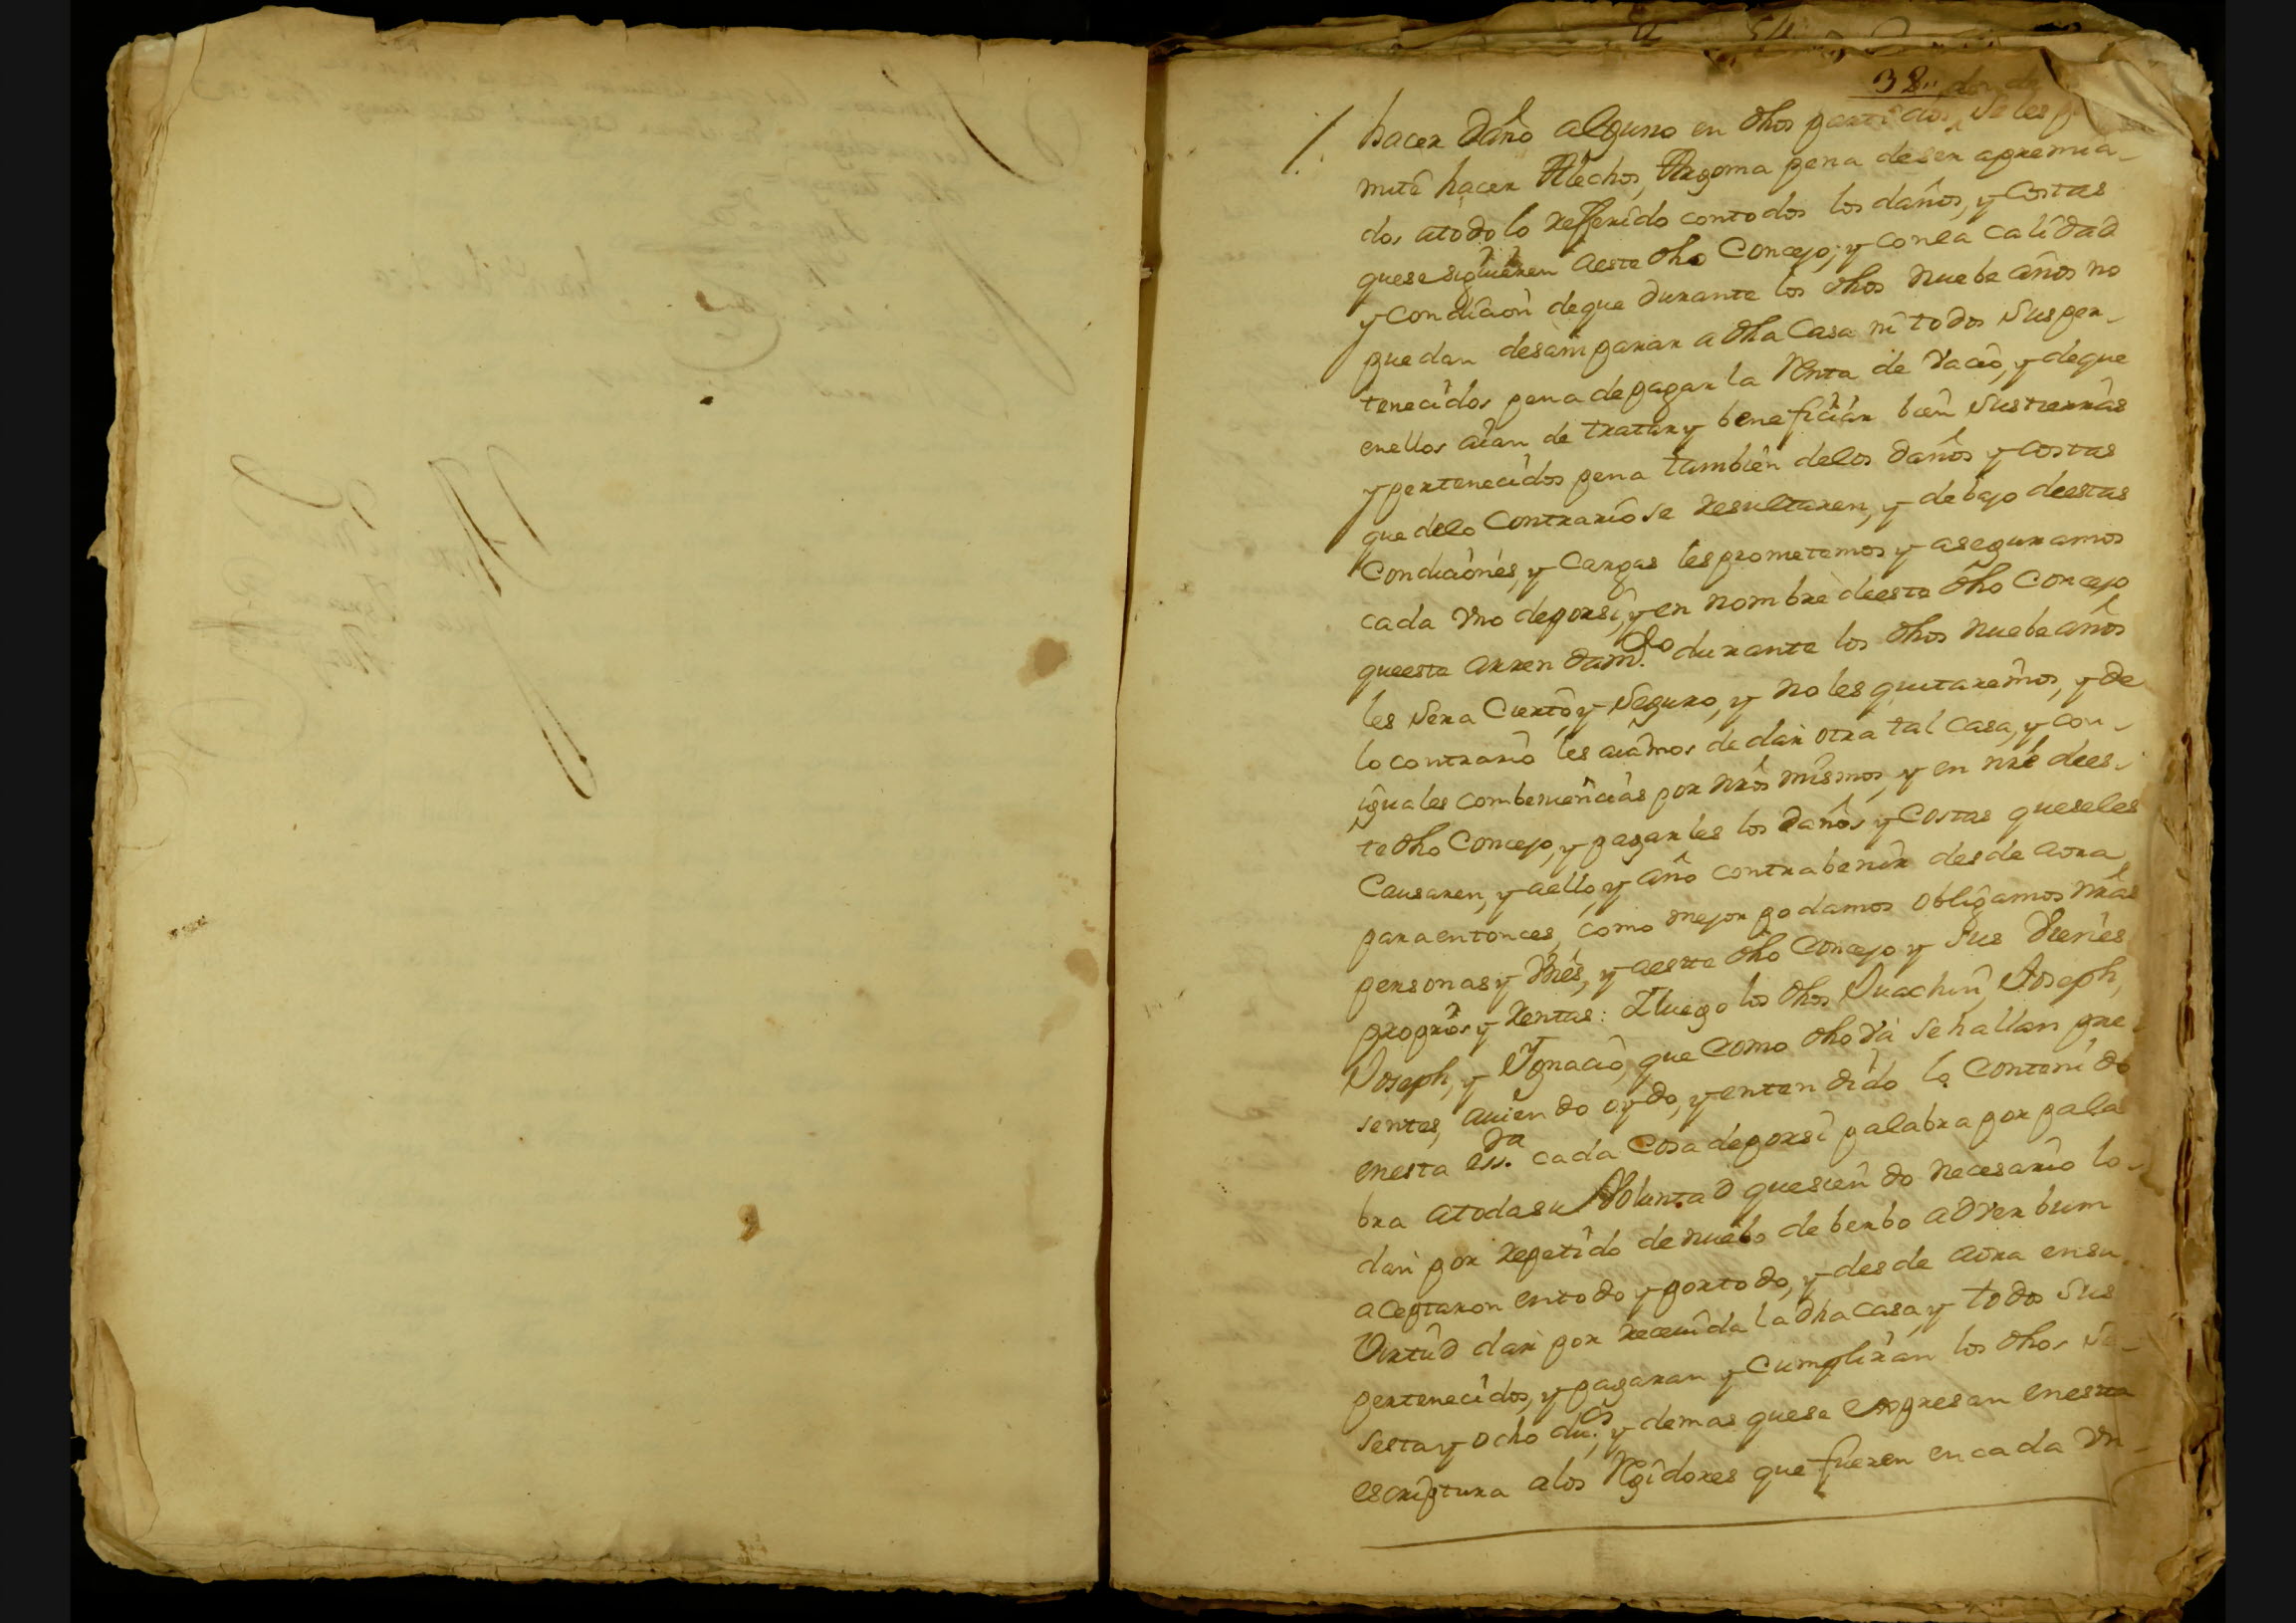 38.. 
hacer daño alguno en dhos partidos, se les p
mite hacer Alechos, Argoma pena de ser apremia-
dos atodo lo refferido contodos los daños, y costas
que se siguieren aeste dho Concejo; y con la calidad
y condicion deque durante los dhos nuebe años no
puedan desamparar a dha Casa ni todos sus per-
tenecidos pena depagar la Renta de vacio, y deque
enellos aian de tratar y beneficiar bien sus tierras
y pertenecidos pena tambien delos daños y costas
que delo Contrario se resultaren, y debajo deestas
Condiciones, y Cargas les prometemos y aseguramos
cada vno deporsi, y en nombre deeste dho Concejo
queeste arrendam.to durante los dhos nuebe años
les sera Cierto y seguro, y no les quitaremos, y de
lo contrario les aiamos de dar otra tal casa, y con-
iguales combeniencias por nros mismos, y en nre dees-
te dho Concejo, y pagarles los daños y costas queseles
Causaren, y aello, y año contrabenir desde aora
paraentonces, como mejor podamos obligamos nras
personas y Vies, y aeste dho Concejo y sus Vienes
proprios y rentas: Iluego los dhos Juachin, Joseph,
Joseph, y Ygnacio, que como dho va se hallan pre-
sentes, auiendo oydo, y entendido lo Contenido
enesta ess.ra cada Cosa deporsi palabra por pala
bra atodasu Voluntad quesiendo necesario lo-
dan por repetido de nuebo de berbo adverbum
aceptaron entodo y portodo, y desde aora ensu
Virtud dan por receuida la dha casa, y todos sus
pertenecidos, y pagaran y Cumpliran los dhos se-
senta y ocho du.os, y demas quese expresan enesta
escriptura alos Regidores que fueren en cada vn-